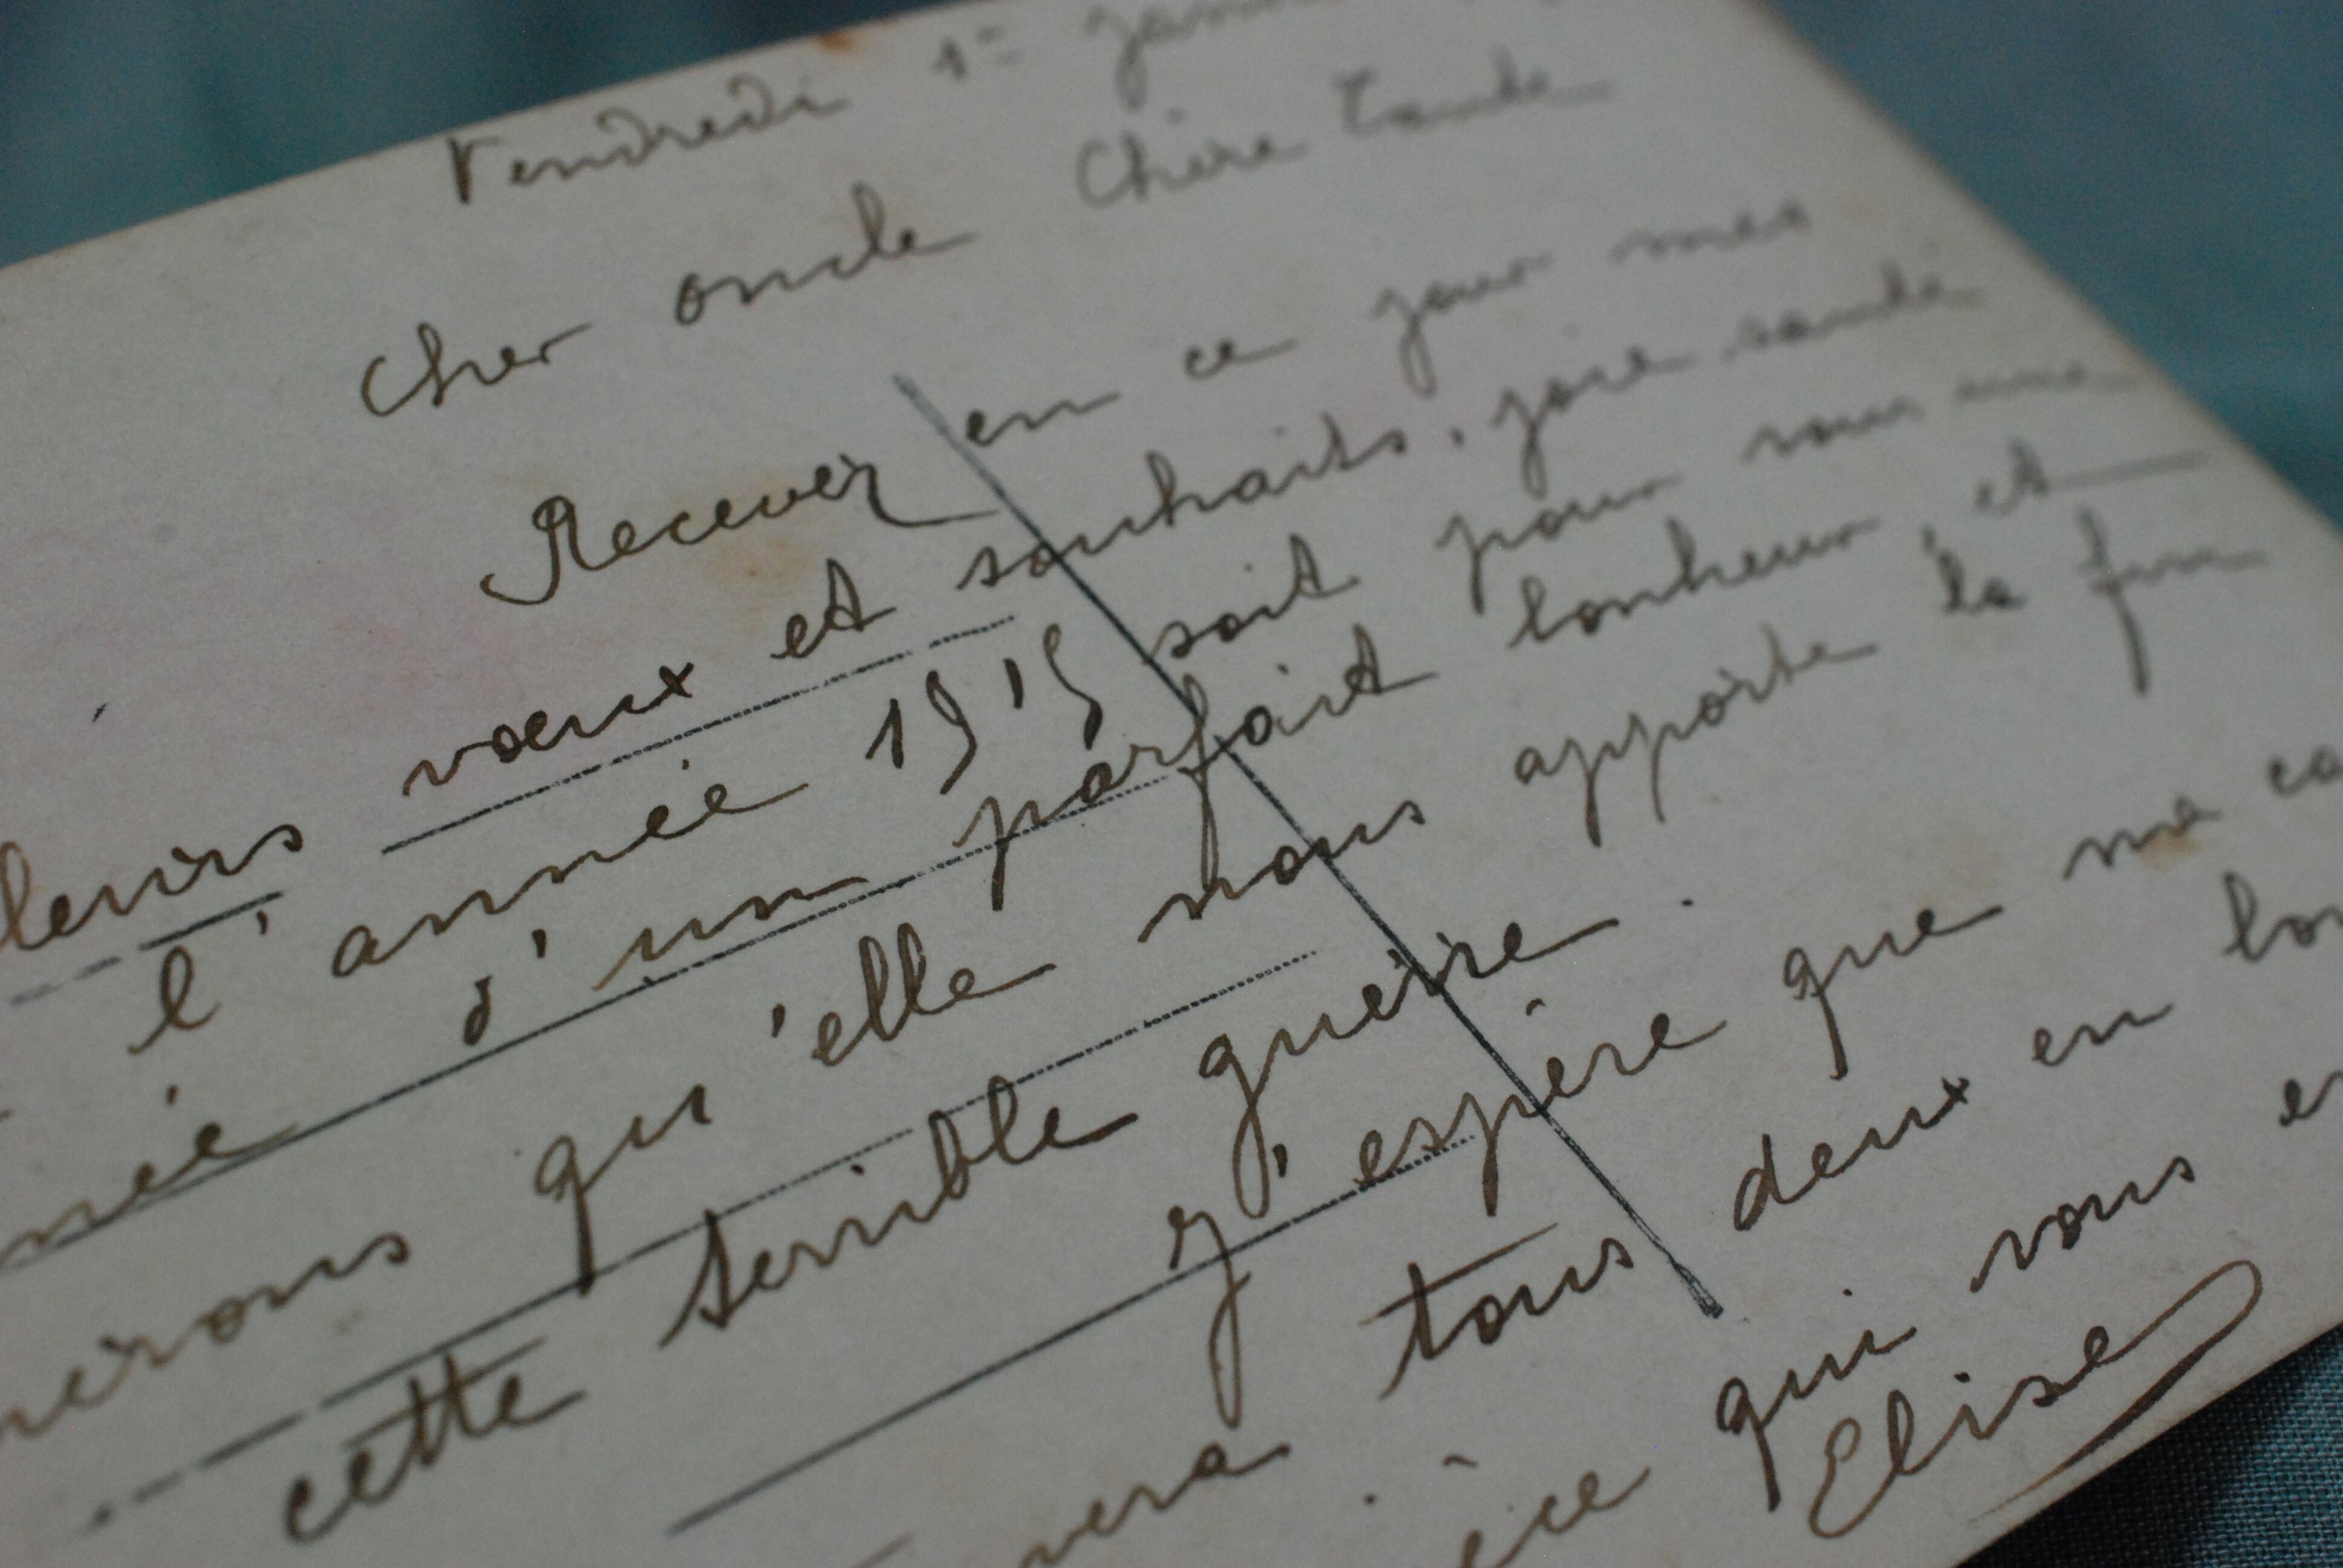 Vendredi 1er Janv
Cher oncle Chère Tante
Recevez en ce jour mes
voeux et souhaits, joie santé
leurs l'année 1915 soit pour vous une
née d'un parfait bonheur, et
nérons qu'elle nous apporte la fin
cette terrible guerre.
J'espère que ma ca
vera tous deux en bon
èce qui vous em
Elise